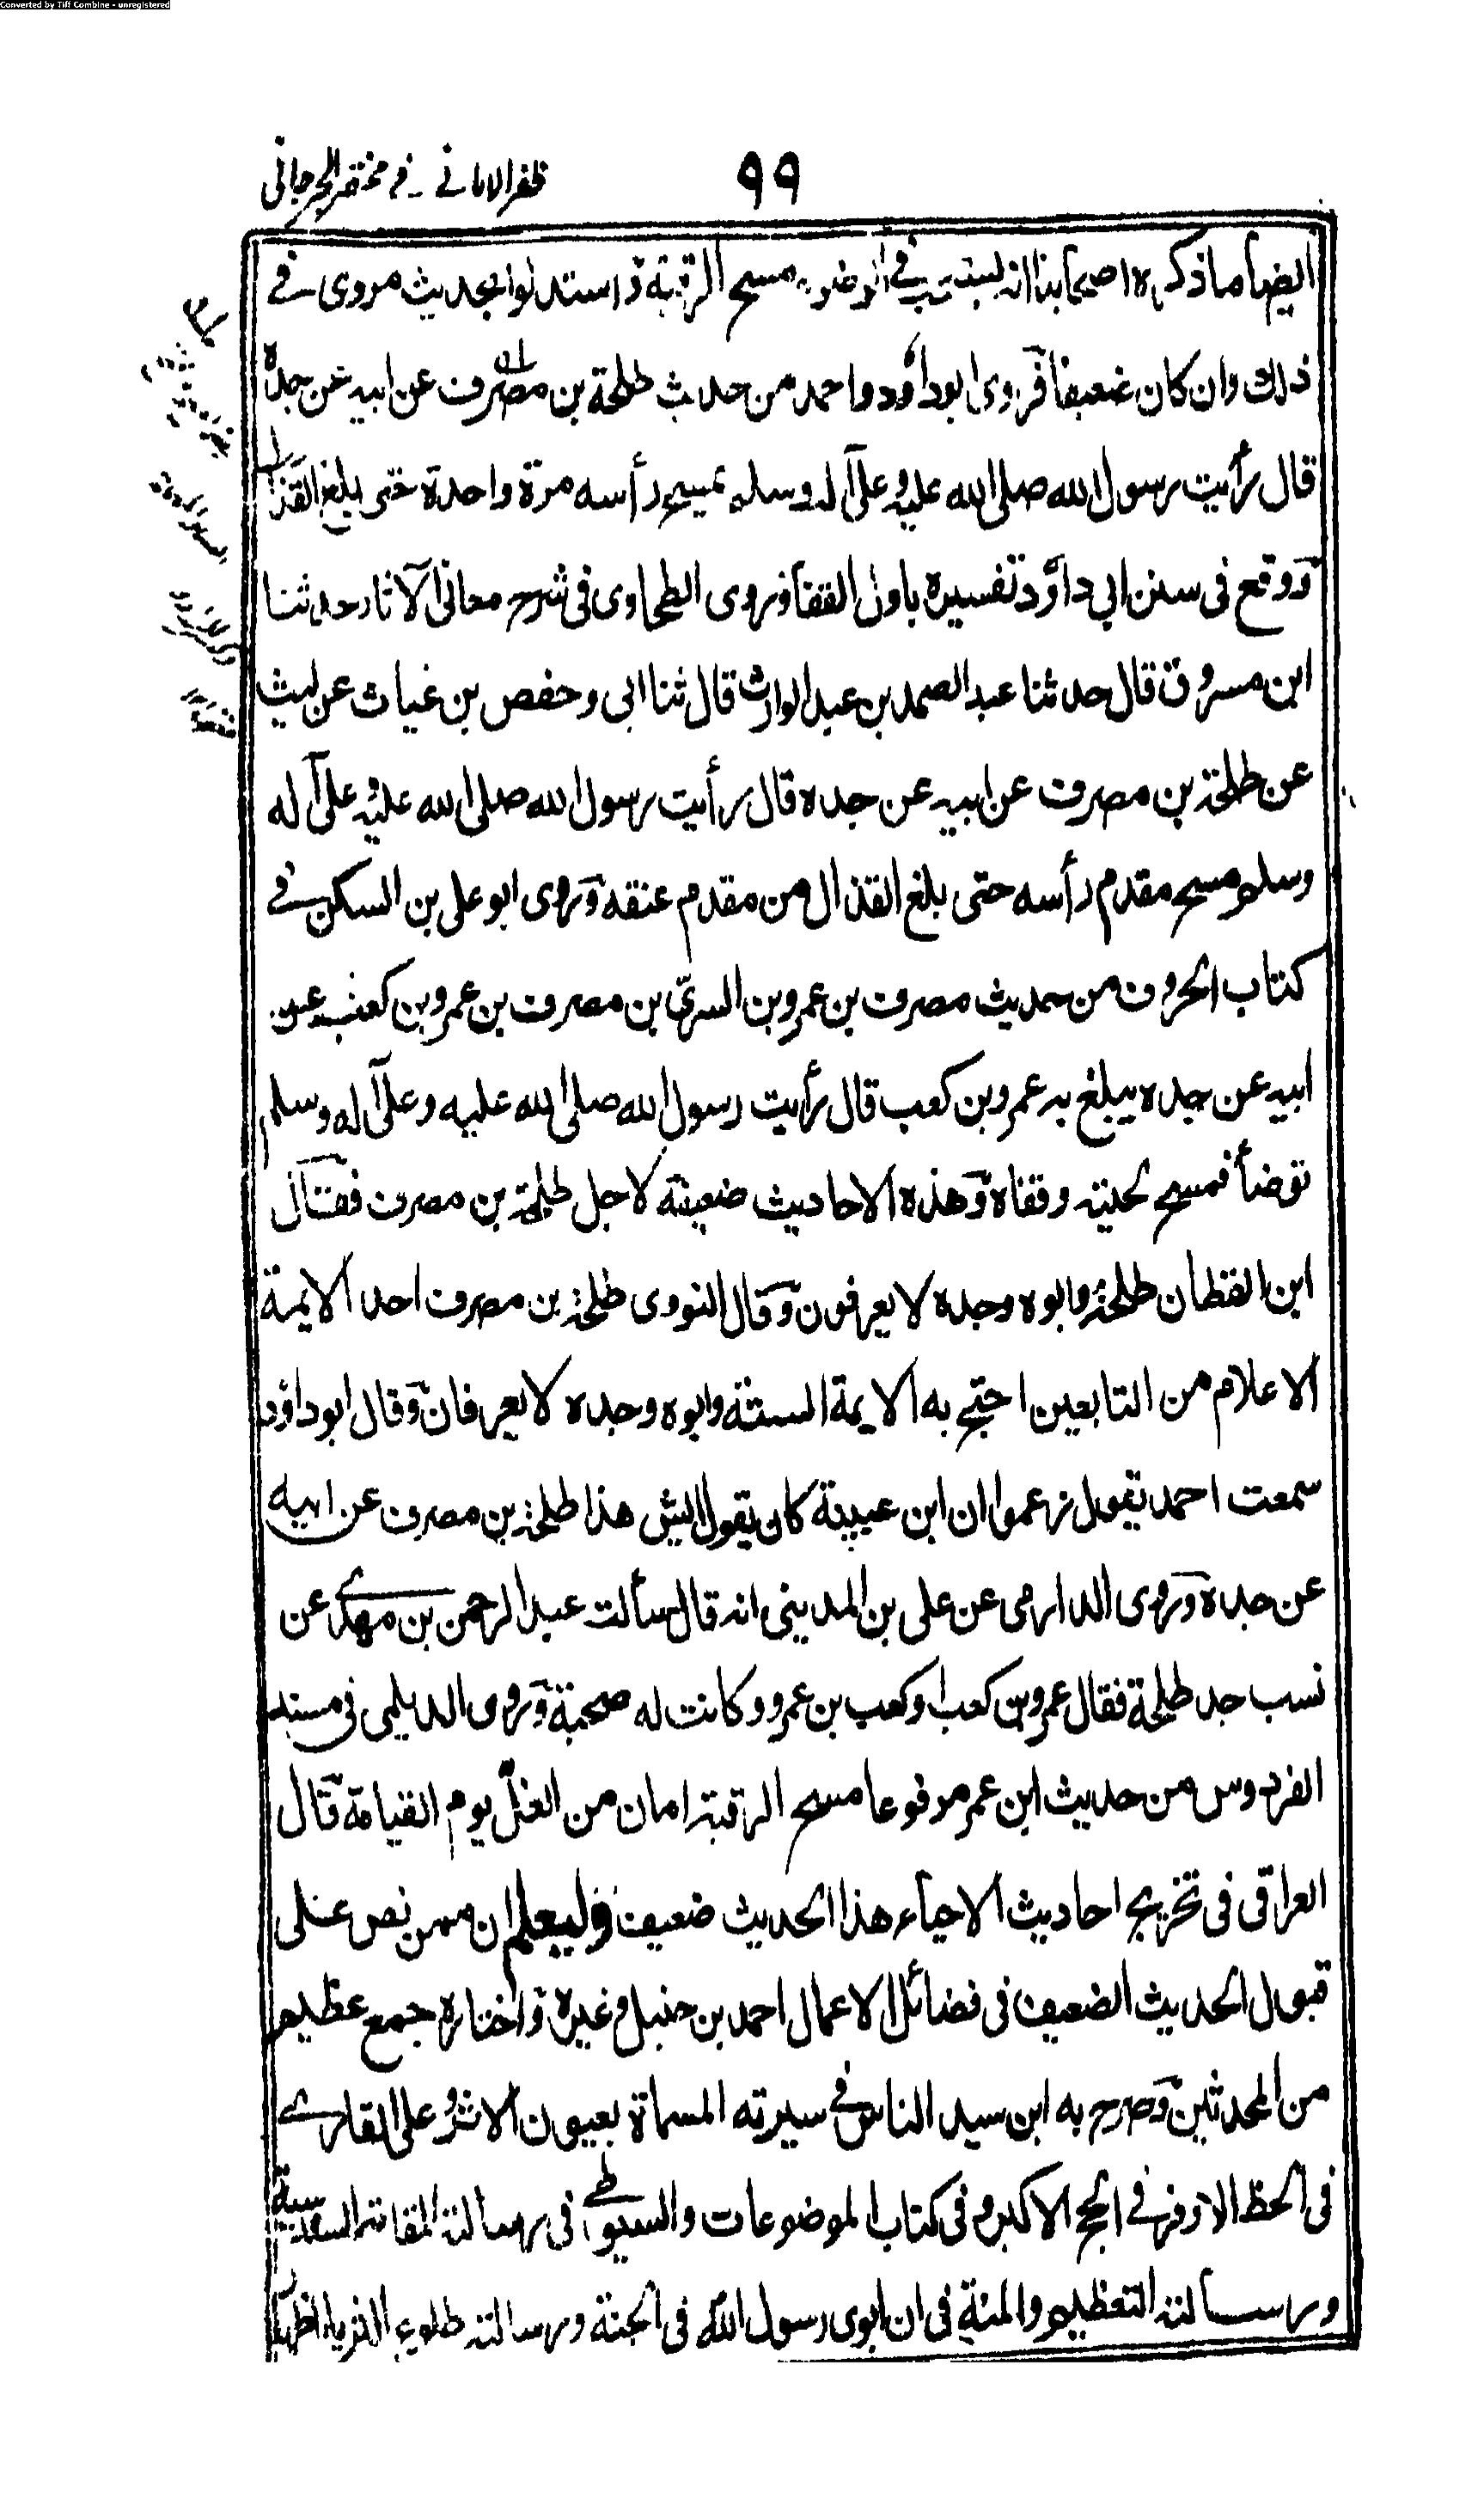 Converted by Tiff Combine - unregistered
٩٩
ظفر الامانے فے مختصر الجرجانی
ایضا ما ذکره اصحابنا انه یستحب فی الوضوء مسح الرقبة واستدلوا بحدیث مروی فے
ذلك وان کان ضعیفا فروی ابو داؤد واحمد من حدیث طلحة بن مصرف عن ابیه عن جده
قال رأیت رسول الله صلی الله علیه وعلی آله وسلم یمسح رأسه مرة واحدة حتی بلغ القذال
ووقع فی سنن ابی داؤد تفسیره باول القفا وروی الطحاوی فی شرح معانی الآثار حدثنا
ابن مسروق قال حدثنا عبد الصمد بن عبد الوارث قال ثنا ابی وحفص بن غیاث عن لیث
عن طلحة بن مصرف عن ابیه عن جده قال رأیت رسول الله صلی الله علیه وعلی آله
وسلم مسح مقدم رأسه حتی بلغ القذال من مقدم عنقه وروی ابو علی بن السکن فے
کتاب الحروف من حدیث مصرف بن عمرو بن السری بن مصرف بن عمرو بن کعب عن
ابیه عن جده یبلغ به عمرو بن کعب قال رأیت رسول الله صلی الله علیه وعلی آله وسلم
توضأ فمسح لحیته وقفاه وهذه الاحادیث ضعیفة لاجل طلحة بن مصرف فقال
ابن القطان طلحة وابوه وجده لا یعرفون وقال النووی طلحة بن مصرف احد الایمة
الاعلام من التابعین احتج به الایمة الستة وابوه وجده لا یعرفان وقال ابو داؤد
سمعت احمد یقول زعموا ان ابن عیینة کان یقول ایش هذا طلحة بن مصرف عن ابیه
عن جده وروی الدارمی عن علی بن المدینی انه قال سألت عبد الرحمن بن مهدے عن
نسب جد طلحة فقال عمرو بن کعب او کعب بن عمرو وکانت له صحبة وروی الدیلمی فی مسند
الفردوس من حدیث ابن عمر مرفوعا مسح الرقبة امان من الغل یوم القیامة قال
العراقی فی تخریج احادیث الاحیاء هذا الحدیث ضعیف ولیعلم ان ممن نص علی
قبول الحدیث الضعیف فی فضائل الاعمال احمد بن حنبل وغیره واختاره جمع عظیم
من المحدثین وصرح به ابن سید الناس فے سیرته المسماة بعیون الاثر وعلی القارے
فی الحظ الاوفر فے الحج الاکبر وفی کتاب الموضوعات والسیوطے فی رسالة المقامة السندسیة
ورسالة التعظیم والمنة فی ان ابوی رسول الله فی الجنة ورسالة طلوع الثریا باظهار